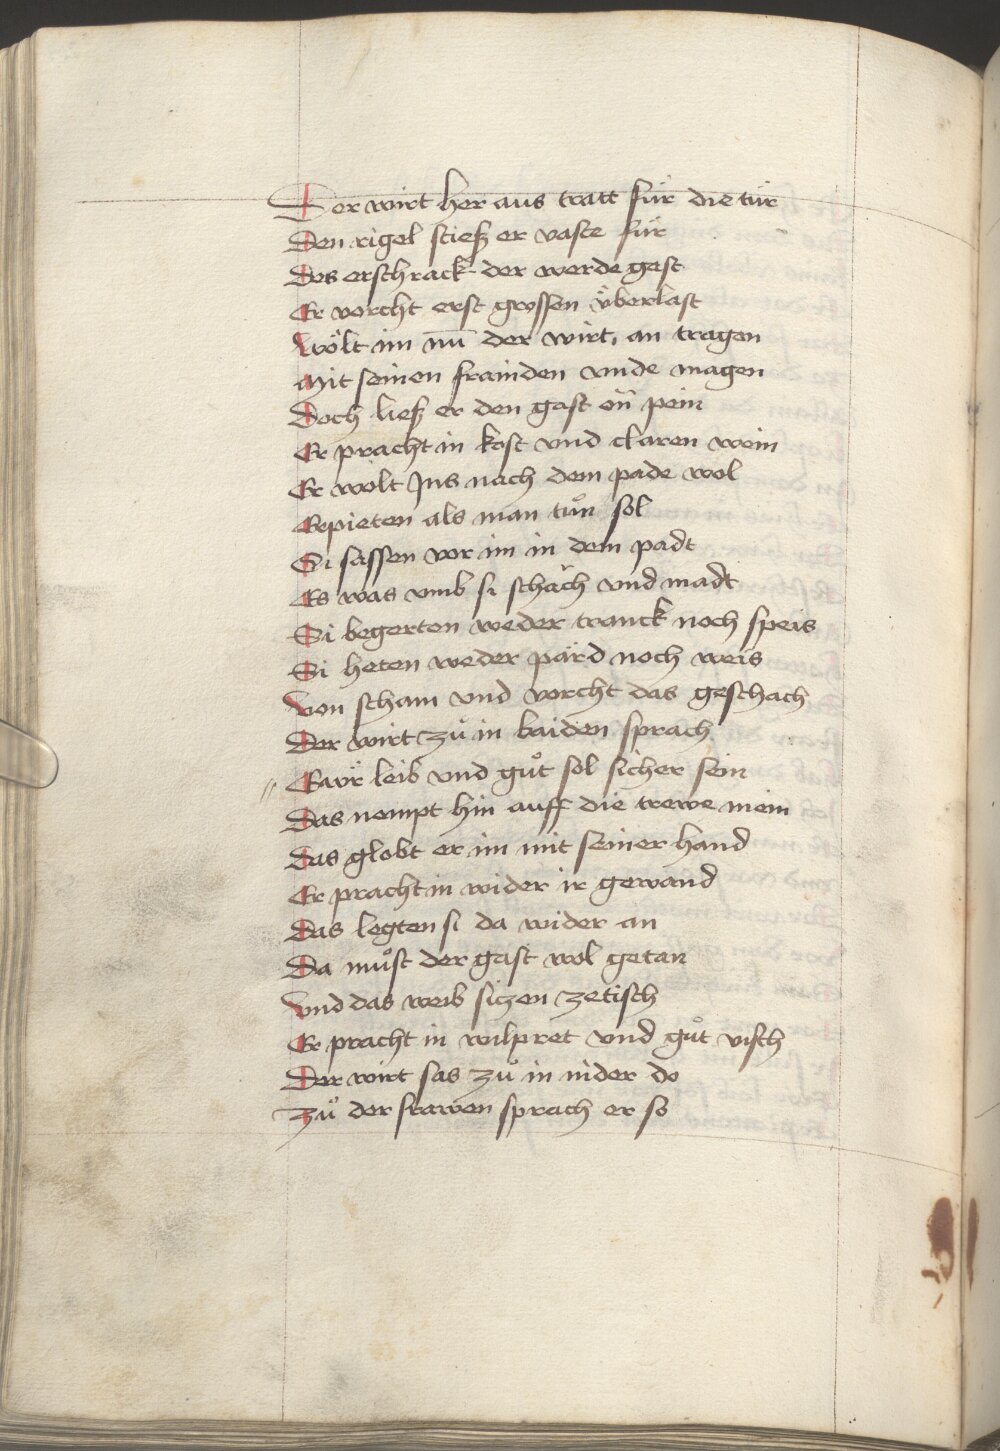 Der wirt her aus tratt für die tür
Den rigel stiesz er vaste für
Des erschrack der werde gast
Er vorcht erst grossen v̈berlast
Wölt im nū der wirt an tragen
Mit seinen frainden vnde magen
Doch liesz er den gast on pein
Er pracht in kost vnd claren wein
Er wolt Ins nach dem pade wol
Erpieten als man tůn sol
Si sassen vor im in dem padt
Es was vmb si schäch vnd madt
Si begerten weder tranck noch speis
Si heten weder pärd noch weis
Von scham vnd vorcht das geschach
Der wirt zů in baiden sprach
Eawr̈ leib vnd gůt sol sicher sein
Das nempt hin auff die trewe mein
Das globt er im mit seiner hand
Er pracht in wider ir gewand
Das legten si da wider an
Da můst der gast wol getan
Vnd das weib siczen ze tisch
Er pracht in wilpret vnd gůt visch
Der wirt sas zů in nider do
Zů der frawen sprach er so